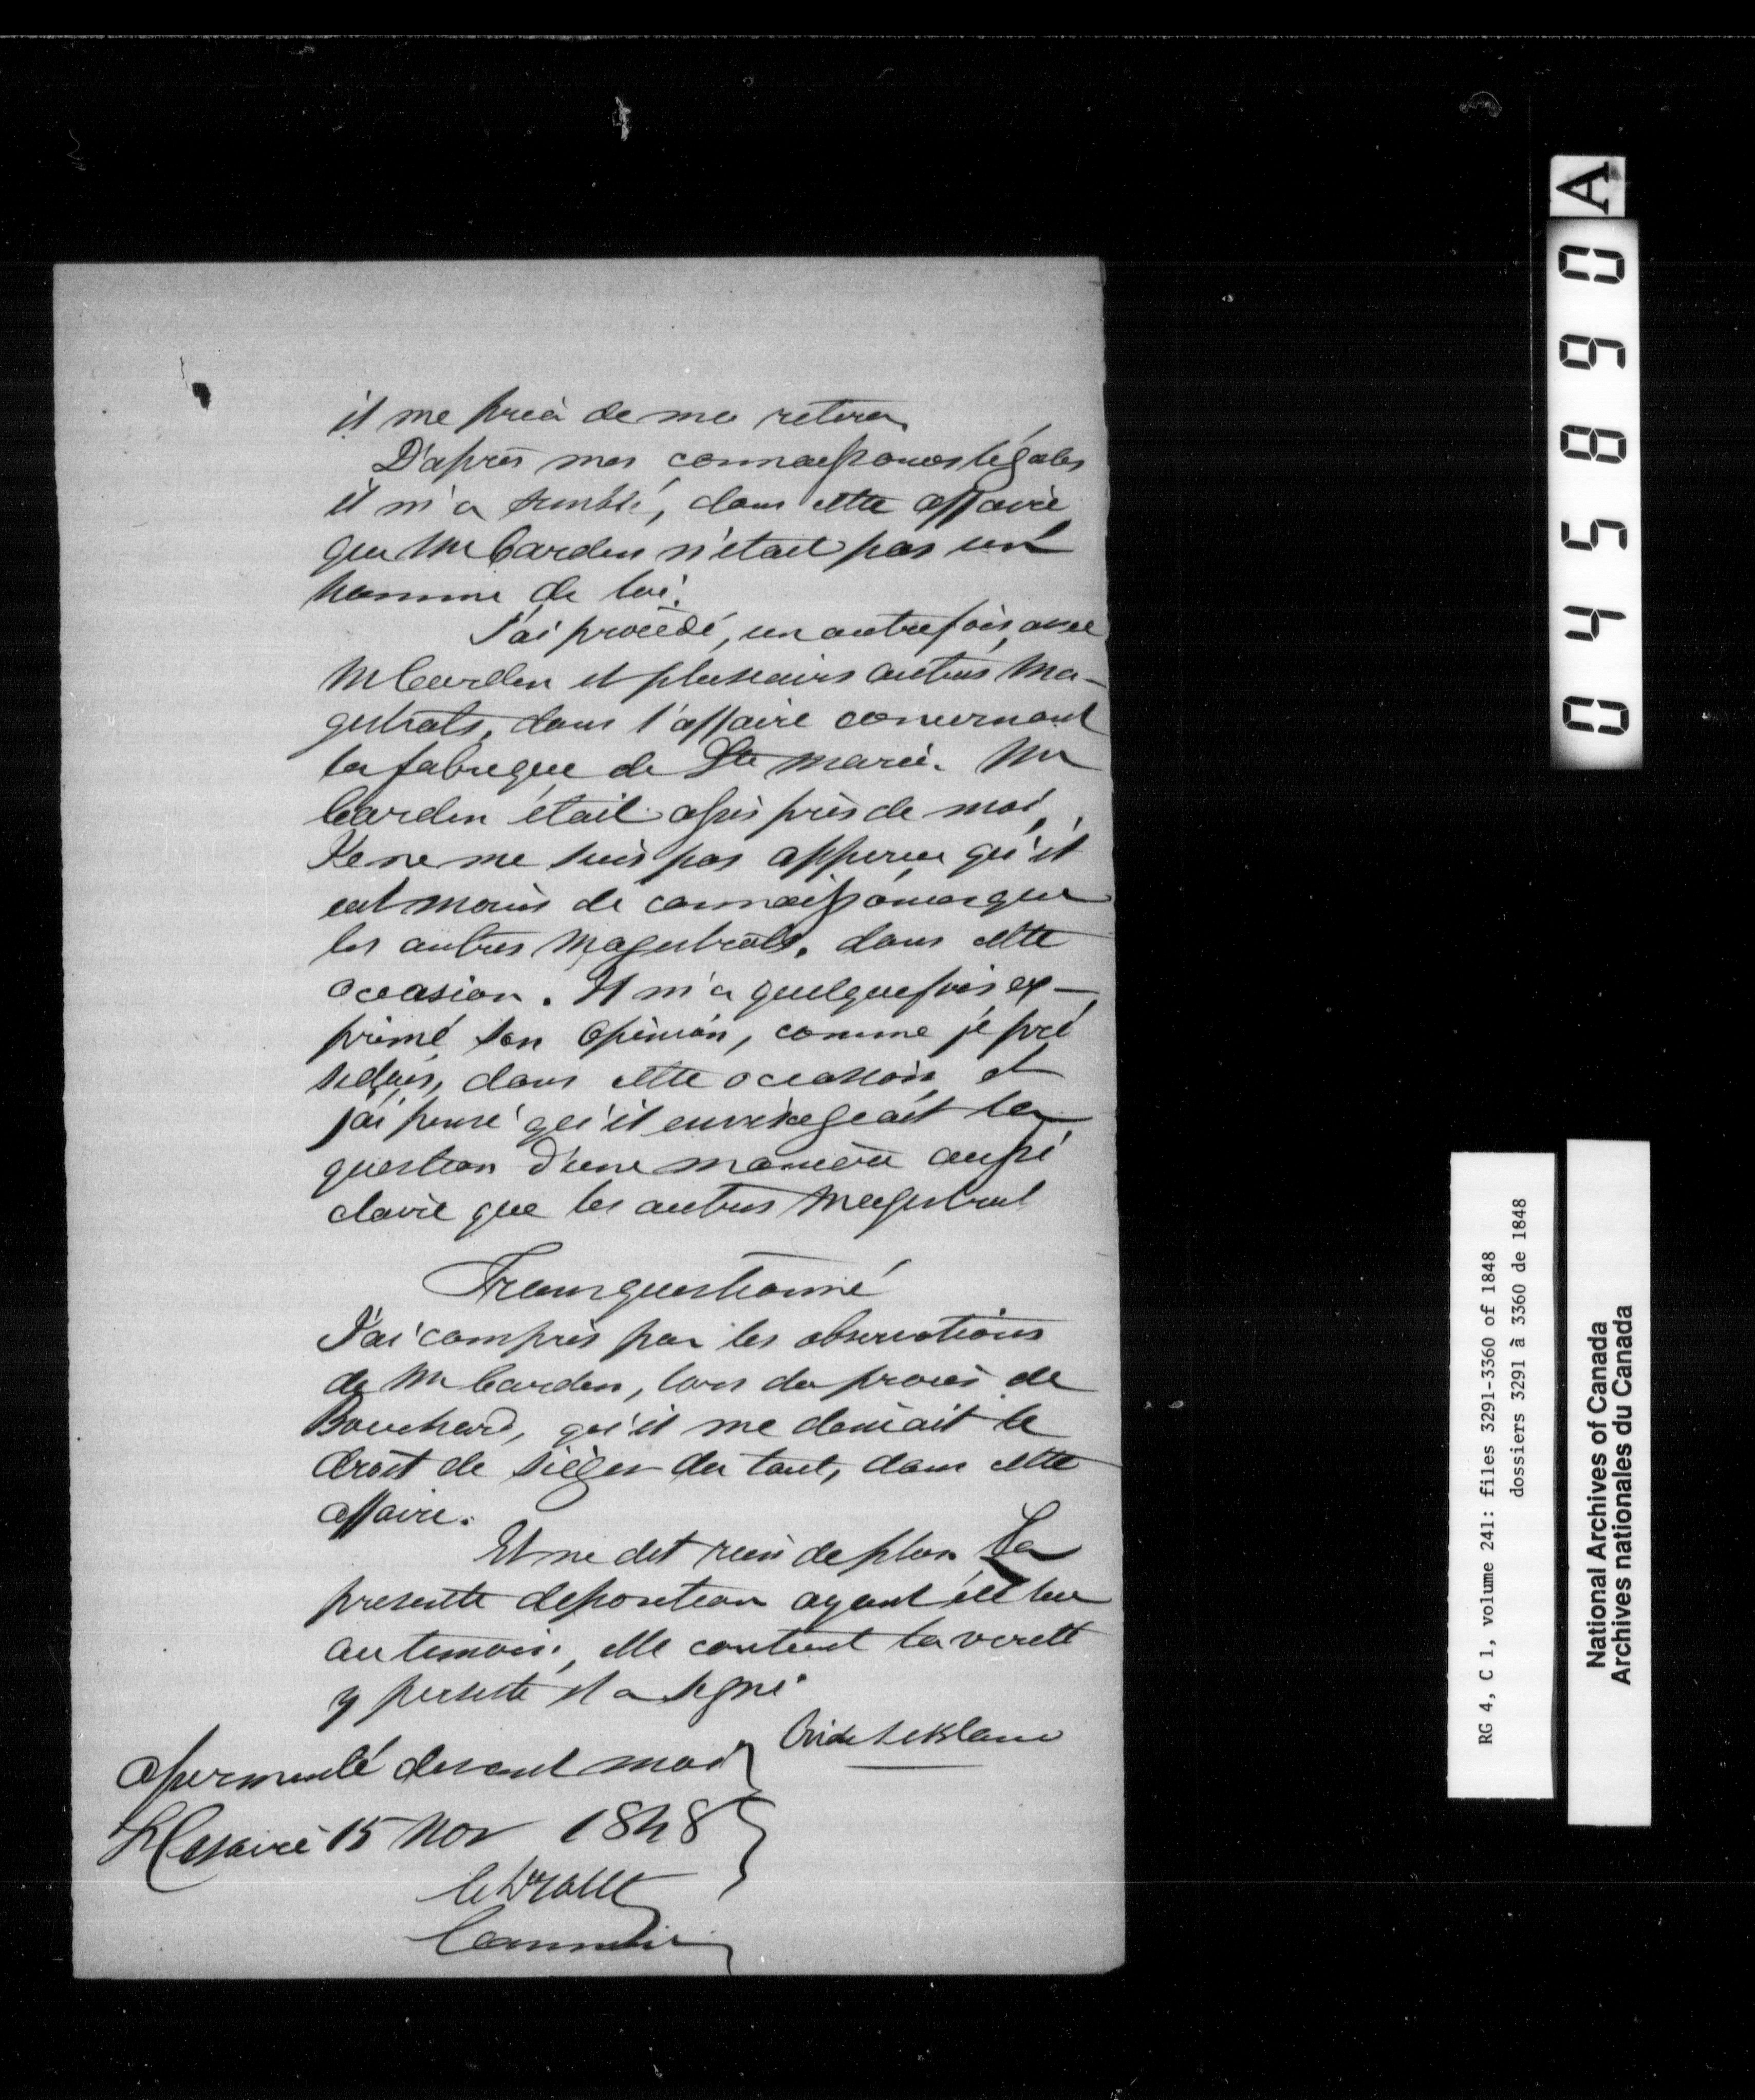 il me pria de me retirer
D'après mes connaissances légales
il m'a semblé, dans cette affaire
que Mr Carden n'était pas un
homme de loi.
J'ai procédé, un autrefois, avec
Mr Carden et plusieurs autres Ma-
gistrats, dans l'affaire concernant
la fabrique de Ste Marie. Mr
Carden était assis près de moi,
Je ne me suis pas apperçu qu'il
eut moins de connaissances que
les autres Magistrats, dans cette
occasion. Il m'a quelquefois ex-
primé son opinion, comme je pré
sidais, dans cette occasion et
j'ai pensé qu'il envisageait la
question d'une manière aussi
claire que les autres Magistrats
Transquestionné
J'ai compris par les observations
de Mr Carden, lors du procès de
Bouchard, qu'il me deniait le
droit de sièger du tout, dans cette
affaire.
Et ne dit rien de plus La
presente deposition ayant été lue
au temoin, elle contient la verité
y persiste et a signé
Ovide LeBlanc
Assermenté devant moi
St Cesaire 15 Nov 1848
RG 4, C 1, volume 241: files 3291-3360 of 1848
dossiers 3291 à 3360 de 1848
National Archives of Canada
Archives nationales du Canada
045890 A